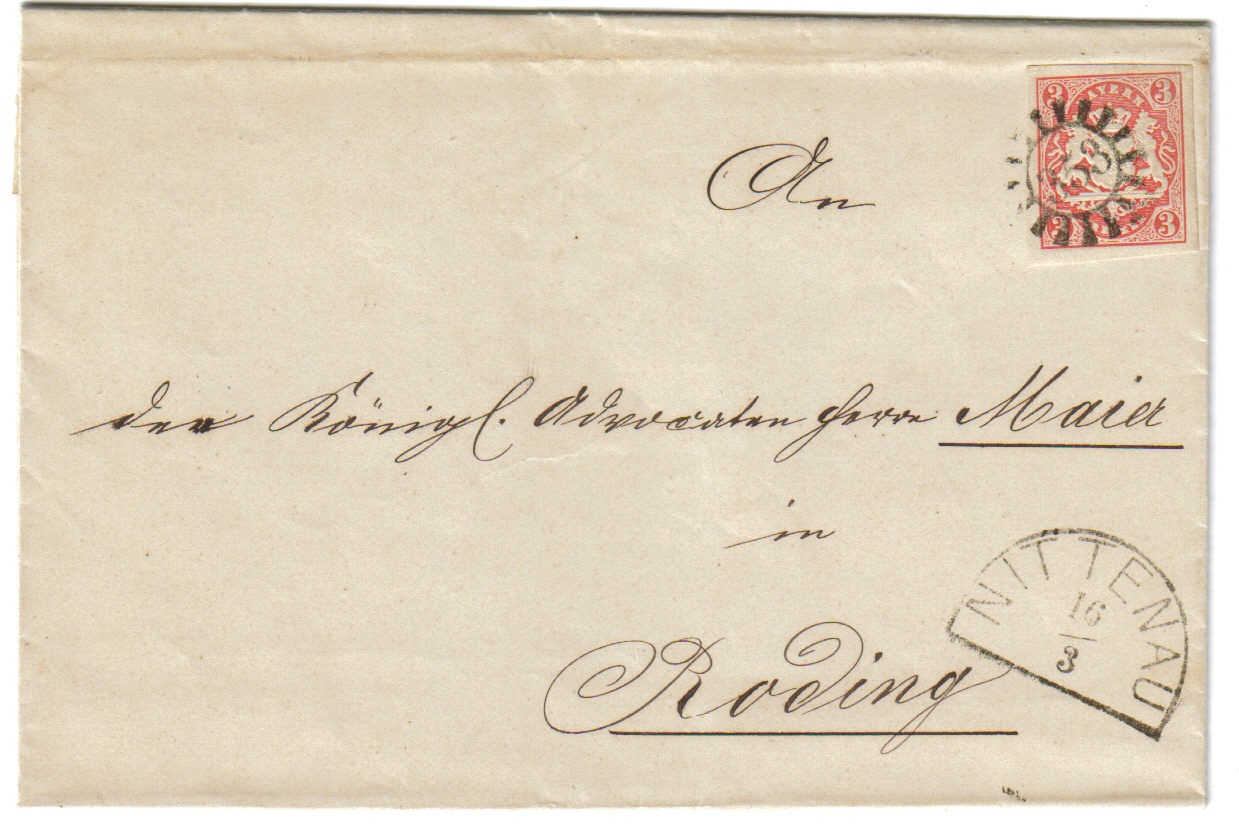 3 BAYERN 3
3 3
An
den Königl. Advocaten Herrn Maier
in
Roding
NITTENAU
16
3